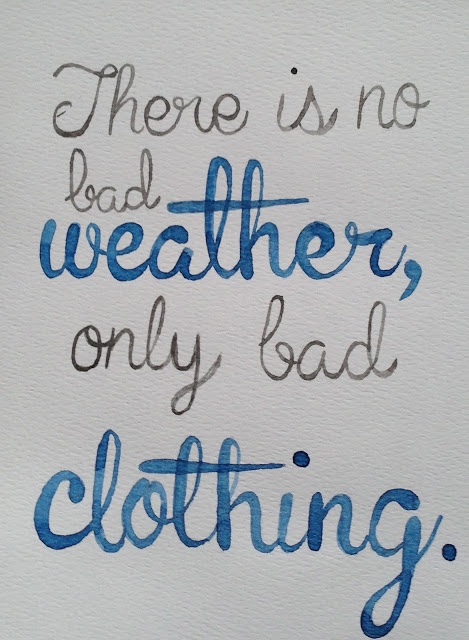 There is no
bad
weather,
only bad
clothing.